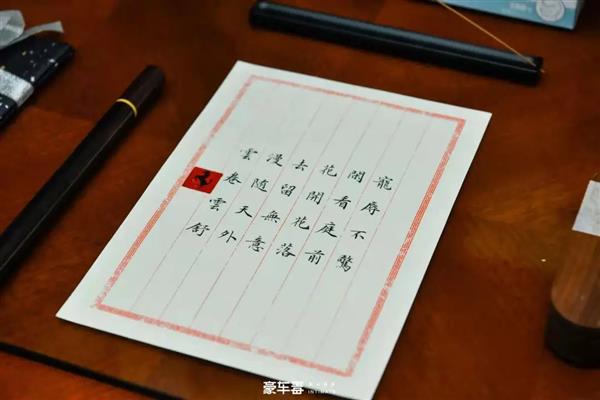 寵辱不驚
閒看庭前
花開花落
去留無意
漫隨天外
雲卷雲舒
豪车毒
INTIMATE